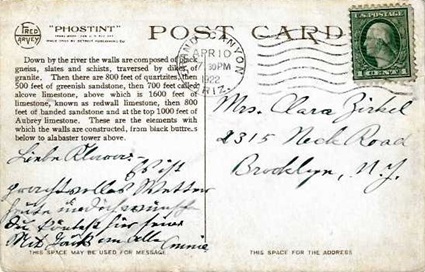 FRED HARVEY
"PHOSTINT"
POST CARD
GRAND CANYON
APR 10
7 30 PM
1922
ARIZ.
U.S. POSTAGE
1 CENT 1
Down by the river the walls are composed of black
gneiss, slates and schists, traversed by dikes of
granite. Then there are 800 feet of quartzites, then
500 feet of greenish sandstone, then 700 feet called
alcove limestone, above which is 1600 feet of
limestone, known as redwall limestone, then 800
feet of banded sandstone and at the top 1000 feet of
Aubrey limestone. These are the elements with
which the walls are constructed, from black buttress
below to alabaster tower above.
Mrs. Clara Zirkel
2315 Neck Road
Brooklyn, N.Y.
Liebe
Es ist
prachtvolles Wetter
heute und ich wünsche
Du könntest hier sein.
Mit an Alle Connie
THIS SPACE MAY BE USED FOR MESSAGE
THIS SPACE FOR THE ADDRESS